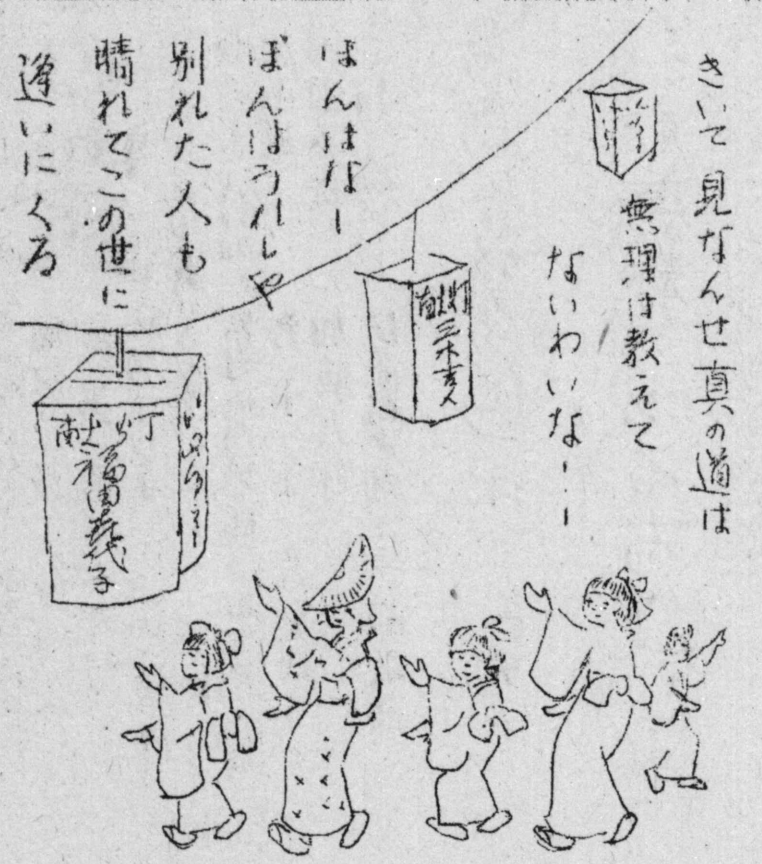 きいて見なんせ真の道は
無理は教えて
ないわいな…ー
ぼんはなー
ぼんはうれしや
別れた人も
晴れてこの世に
逢いにくる
献灯
献灯
福田喜代子